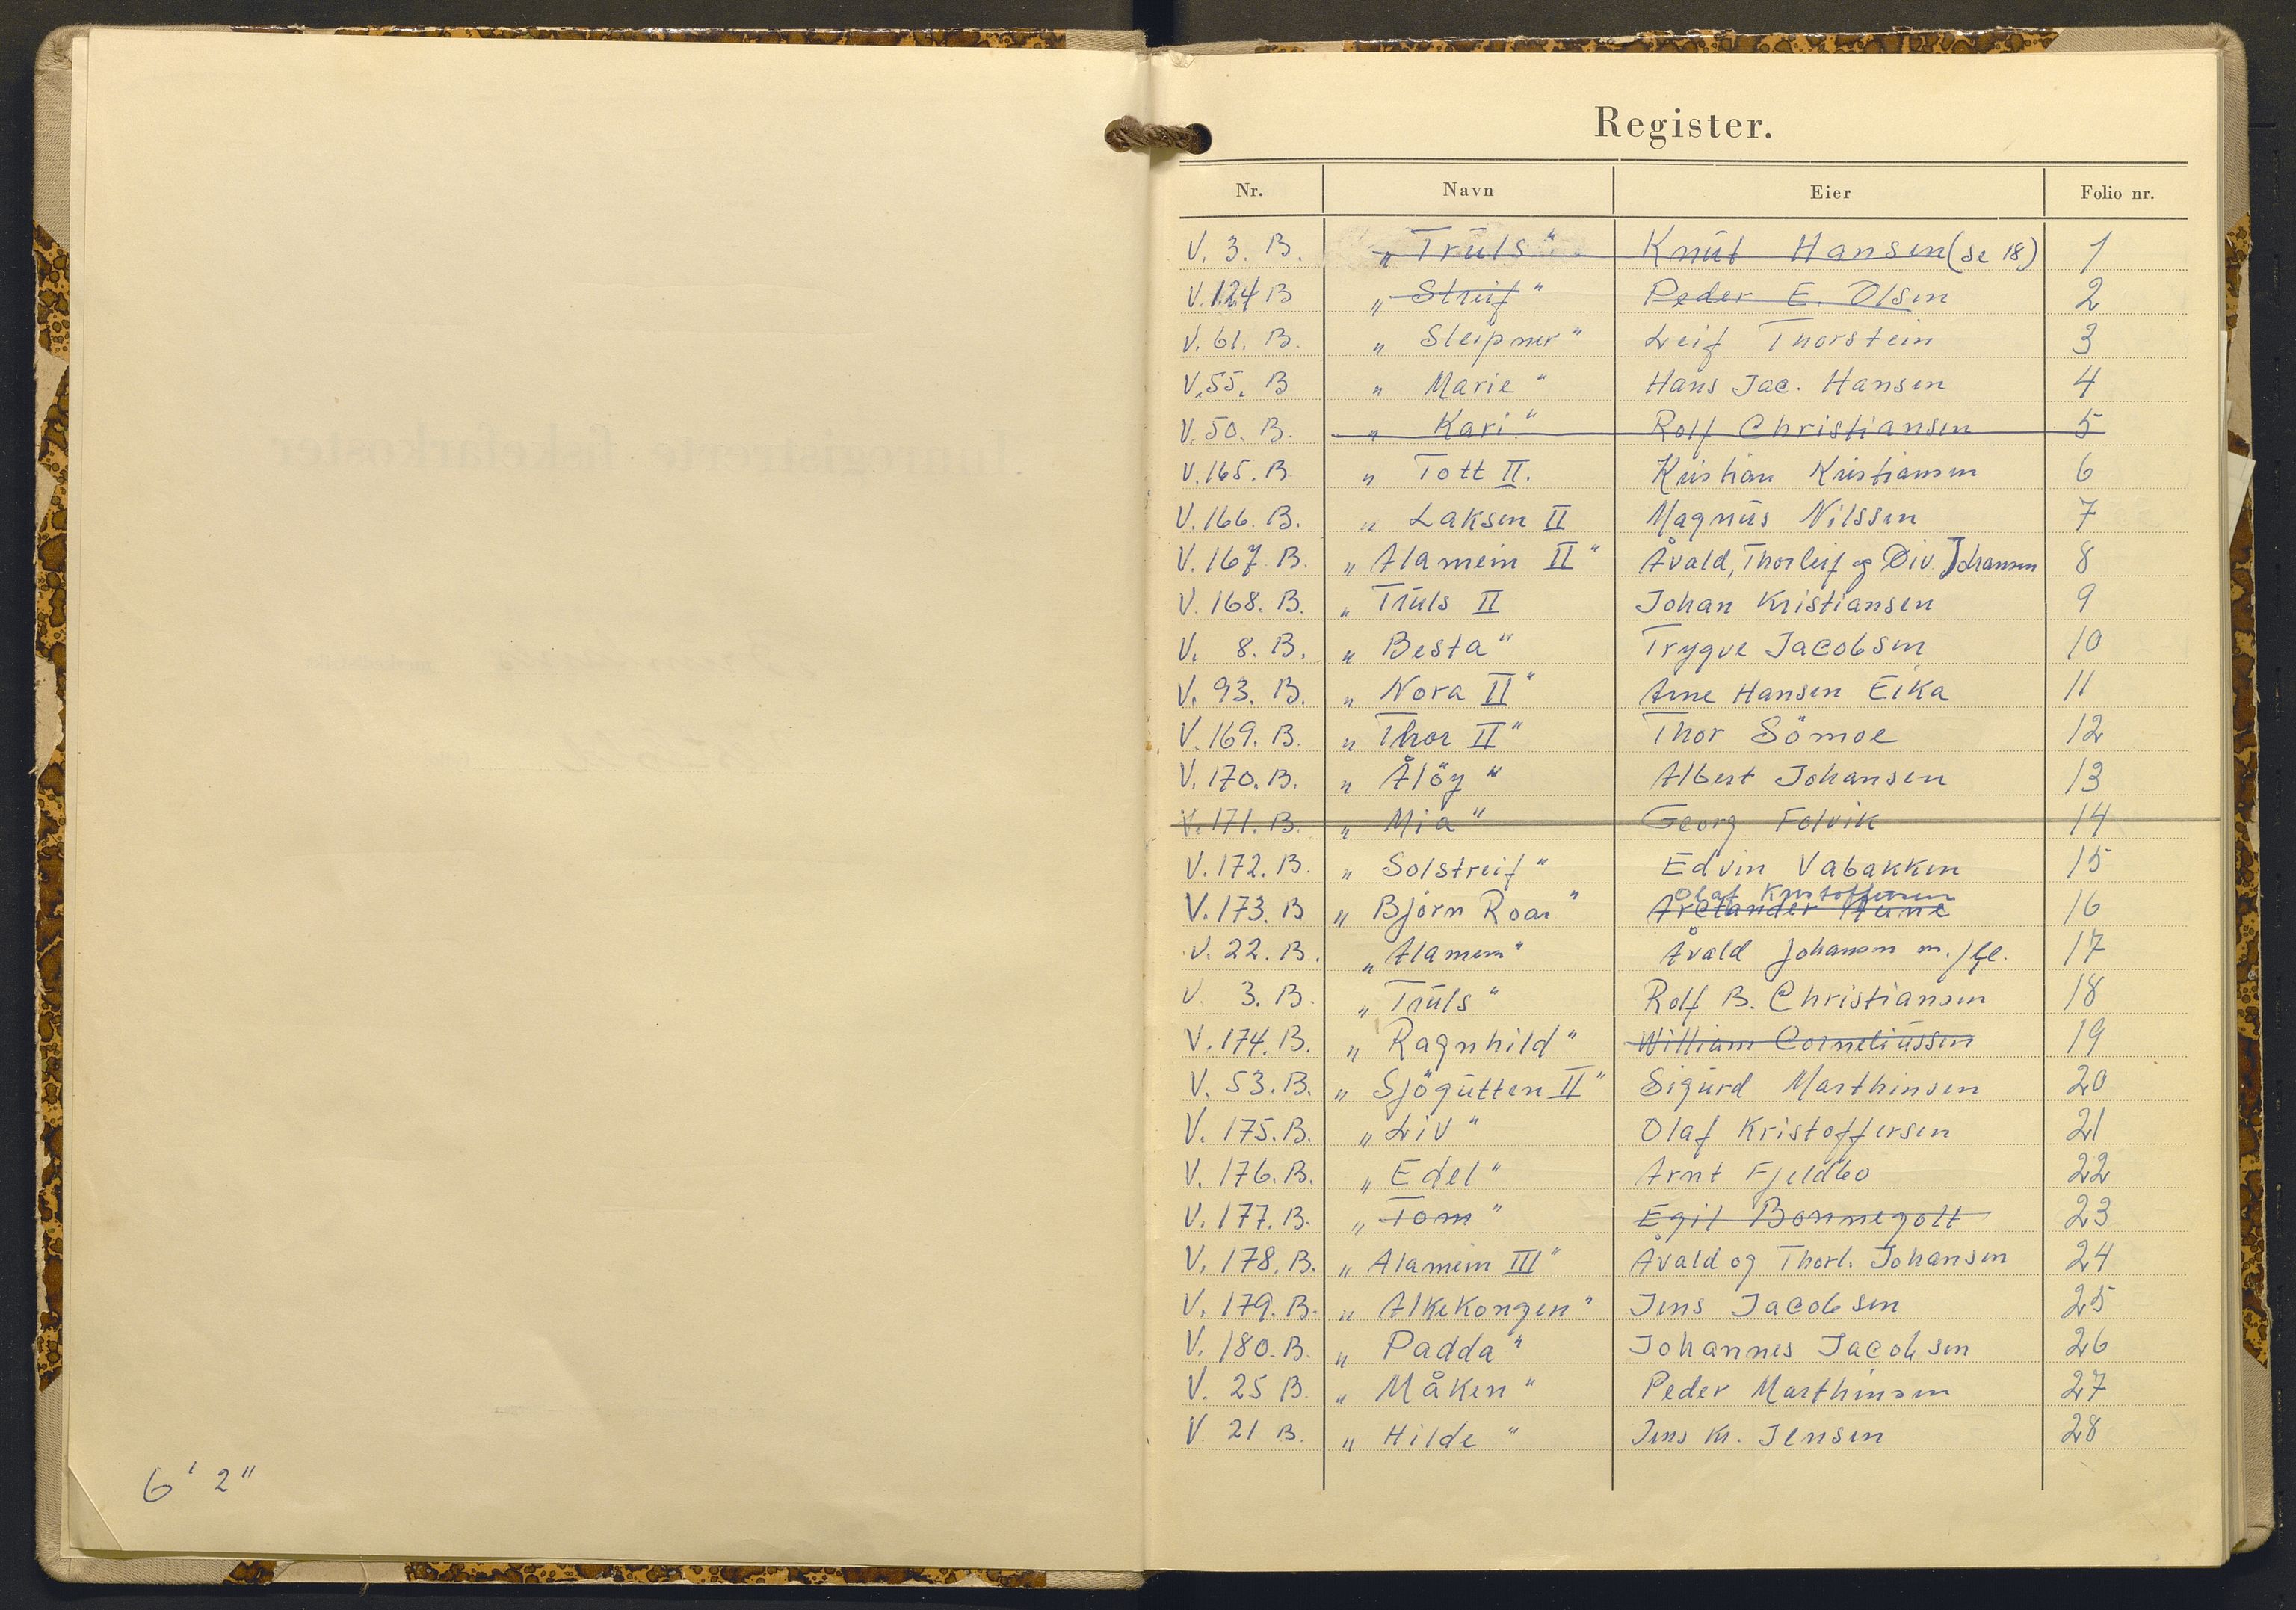 6' 2"
Register.
Nr. Navn Eier Folio nr.
V. 3. B. „ Truls " Knut Hansen (se 18) 1
V. 124 B „ Streif " Peder E. Olsen 2
V. 61. B. „ Sleipner " Leif Thorstein 3
V. 55. B „ Marie " Hans Jac. Hansen 4
V. 50. B. „ Kari " Rolf Christiansen 5
V. 165. B „ Tott II. Kristian Kristiansen 6
V. 166. B. „ Laksen II Magnus Nilssen 7
V. 167. B. „ Alamein II " Åvald, Thorleif og Div. Johansen 8
V. 168. B. „ Truls II Johan Kristiansen 9
V. 8. B. „ Besta " Trygve Jacobsen 10
V. 93. B. „ Nora II " Arne Hansen Eika 11
V. 169. B. „ Thor II " Thor Sömoe 12
V. 170. B. „ Ålöy " Albert Johansen 13
V. 171. B. „ Mia " Georg Folvik 14
V. 172. B. „ Solstreif " Edvin Vabakken 15
Olaf Kristoffersen
V. 173. B „ Bjørn Roar " Arctander 16
V. 22. B. „ Alamein " Åvald Johansen m./fl. 17
V. 3. B. „ Truls " Rolf B. Christiansen 18
V. 174. B. „ Ragnhild " William Corneliussen 19
V. 53. B. „ Sjögutten II " Sigurd Marthinsen 20
V. 175. B. „ Liv " Olaf Kristoffersen 21
V. 176. B. „ Edel " Arnt Fjeldbo 22
V. 177. B. „ Tom " Egil Bonnegolt 23
V. 178. B. „ Alamein III " Åvald og Thorl. Johansen 24
V. 179. B. „ Alkekongen " Jens Jacobsen 25
V. 180. B. „ Padda " Johannes Jacobsen 26
V. 25 B. „ Måken " Peder Marthinsen 27
V. 21 B. „ Hilde " Jens Kr. Jensen 28